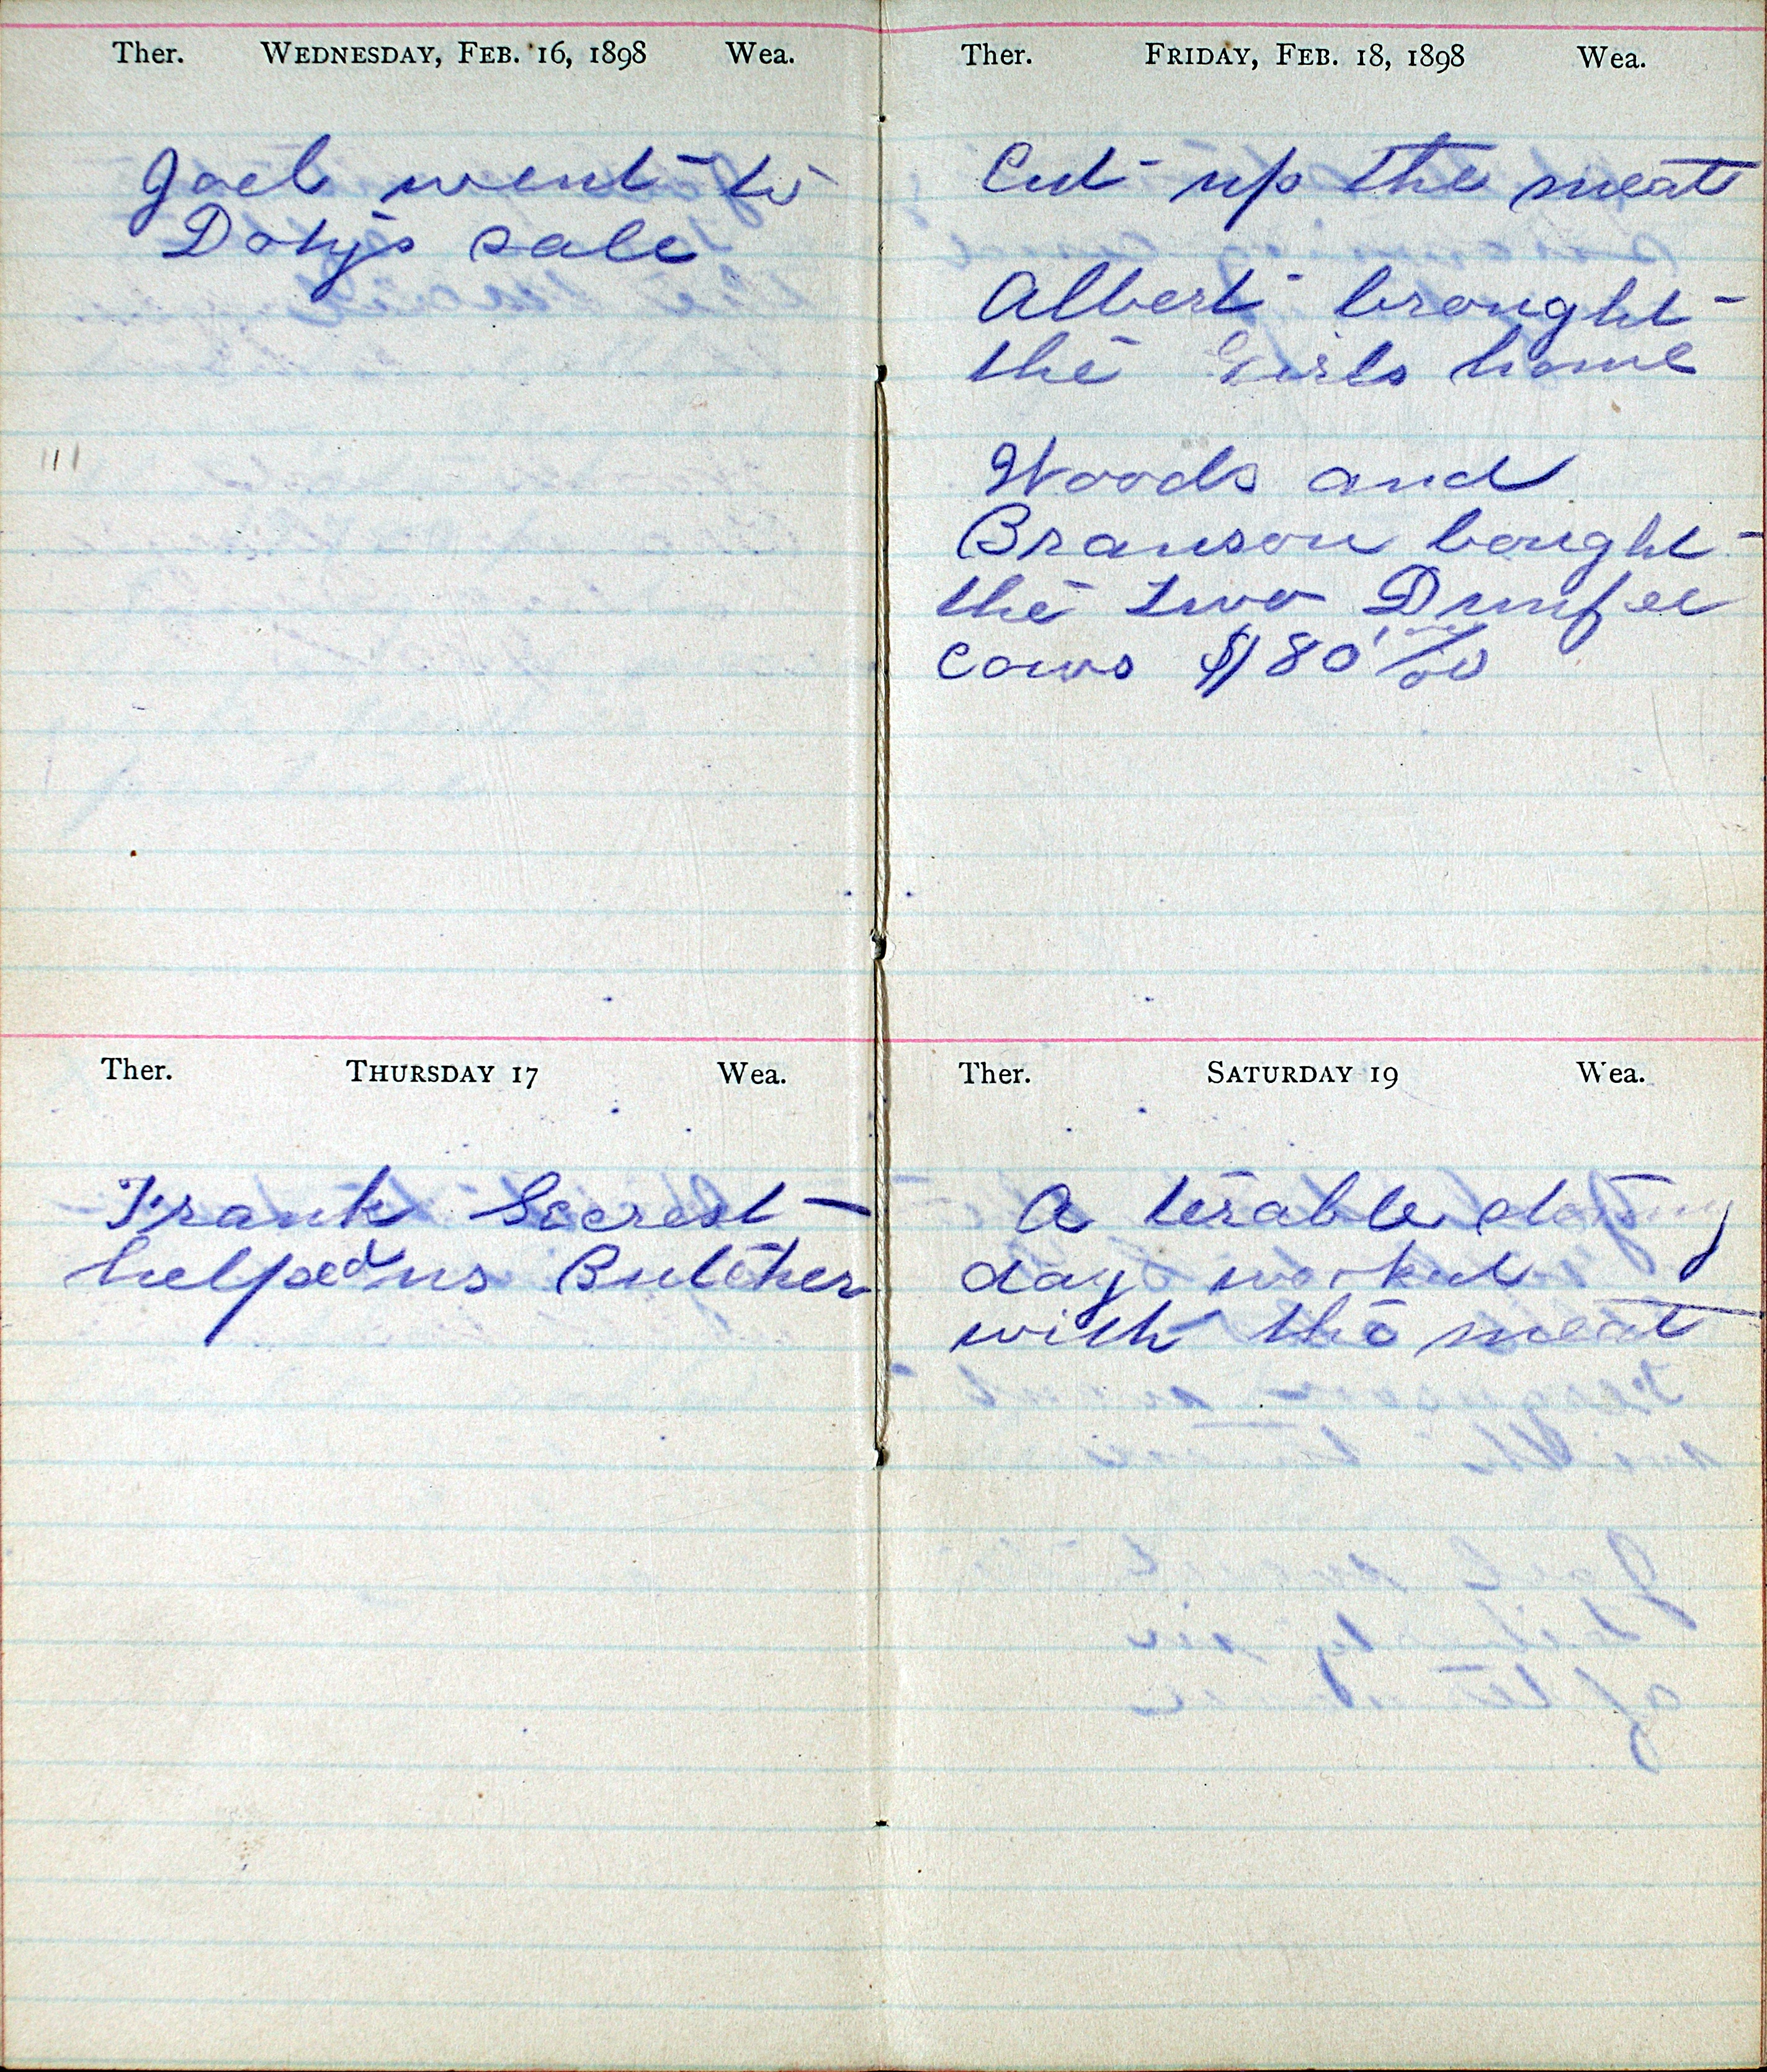 Ther. WEDNESDAY, FEB. 16, 1898 Wea.
Joel went to
Dotys sale
Ther. THURSDAY 17 Wea.
Frank Secrest
helped us Butcher
Ther. FRIDAY, FEB. 18, 1898 Wea.
Cut up the meat
Albert brought
the Girls home
Woods and
Branson bought
the two
cows $80 00/00
Ther. SATURDAY 19 Wea.
A terable
day worked
with the meat